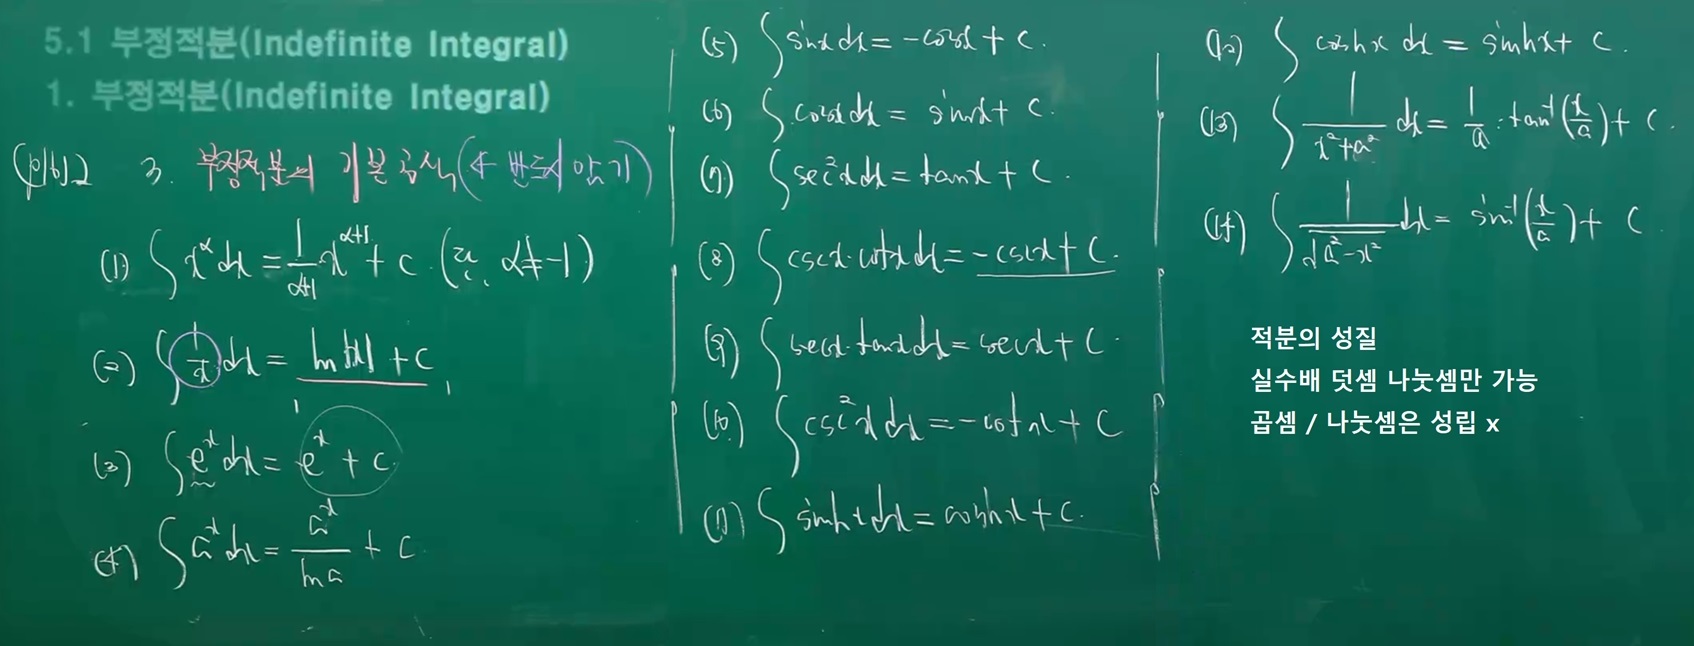 5.1 부정적분(Indefinite Integral)
1. 부정적분(Indefinite Integral)
3. 부정적분의 기본공식(반드시 암기)
(1) ∫ x^α dx = 1/(α+1) x^(α+1) + C. (단, α ≠ -1)
(2) ∫ 1/x dx = ln|x| + C
(3) ∫ e^x dx = e^x + C
(4) ∫ a^x dx = a^x/ln a + C
(5) ∫ sinx dx = -cosx + C.
(6) ∫ cosx dx = sinx + C.
(7) ∫ sec²x dx = tanx + C.
(8) ∫ cscx·cotx dx = -cscx + C.
(9) ∫ secx·tanx dx = secx + C.
(10) ∫ csc²x dx = -cotx + C
(11) ∫ sinhx dx = coshx + C.
(12) ∫ coshx dx = sinhx + C.
(13) ∫ 1/(x²+a²) dx = 1/a · tan⁻¹(x/a) + C.
(14) ∫ 1/√(a²-x²) dx = sin⁻¹(x/a) + C.
적분의 성질
실수배 덧셈 나눗셈만 가능
곱셈 / 나눗셈은 성립 x